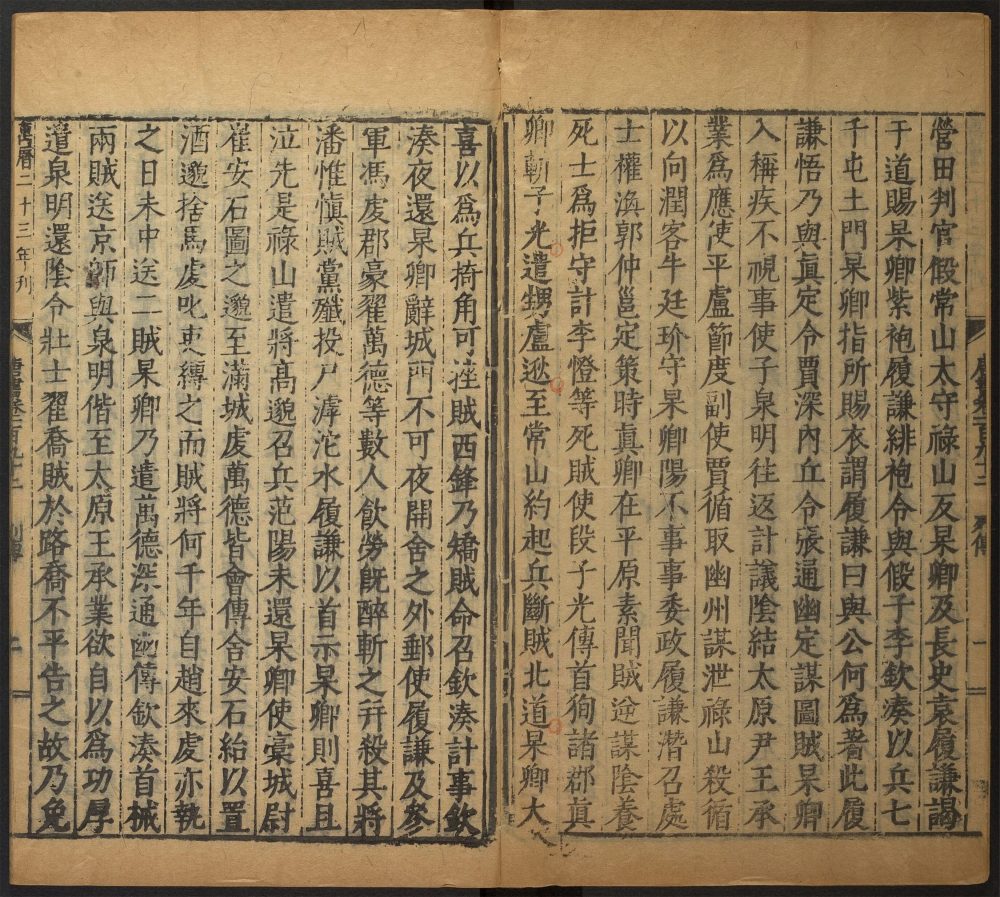 營田判官假常山太守祿山反杲卿及長史袁履謙謁
于道賜杲卿紫袍履謙緋袍令與假子李欽湊以兵七
千屯土門杲卿指所賜衣謂履謙曰與公何爲著此履
謙悟乃與眞定令賈深內丘令張通幽定謀圖賊杲卿
入稱疾不視事使子泉明往返計議陰結太原尹王承
業爲應使平盧節度副使賈循取幽州謀泄祿山殺循
以向潤客牛廷玠守杲卿陽不事事委政履謙潛召處
士權渙郭仲邕定策時眞卿在平原素聞賊逆謀陰養
死士爲拒守計李憕等死賊使段子光傳首徇諸郡眞
卿斬子光遣甥盧逖至常山約起兵斷賊北道杲卿大
喜以爲兵掎角可挫賊西鋒乃矯賊命召欽湊計事欽
湊夜還杲卿辭城門不可夜開舍之外郵使履謙及參
軍馮虔郡豪翟萬德等數人飲勞既醉斬之幷殺其將
潘惟愼賊黨殲投尸滹沱水履謙以首示杲卿則喜且
泣先是祿山遣將高邈召兵范陽未還杲卿使藁城尉
崔安石圖之邈至滿城虔萬德皆會傳舍安石紿以置
酒邈捨馬虔叱吏縛之而賊將何千年自趙來虔亦執
之日未中送二賊杲卿乃遣萬德深通幽傳欽湊首械
兩賊送京師與泉明偕至太原王承業欲自以爲功厚
遣泉明還陰令壯士翟喬賊於路喬不平告之故乃免
萬曆二十三年刊
唐書卷一百九十二 列傳 二